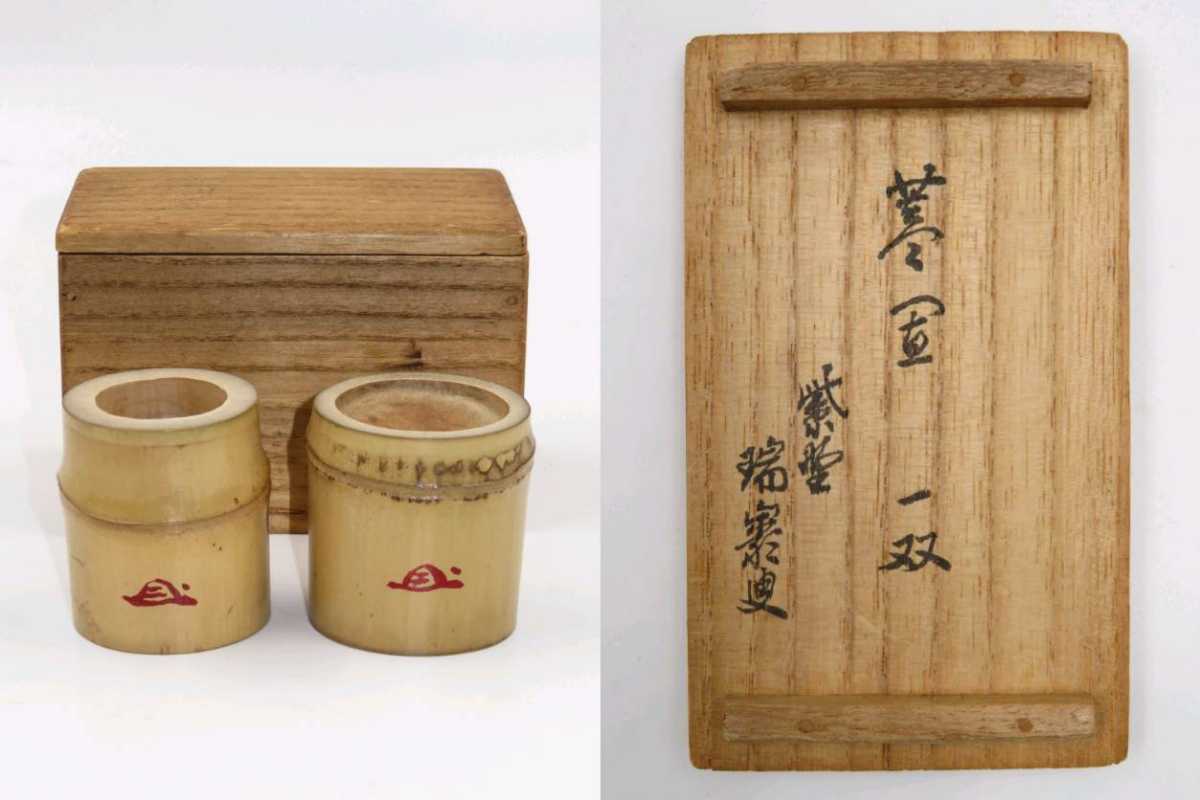 蓋置 一双
紫野
瑞 叟